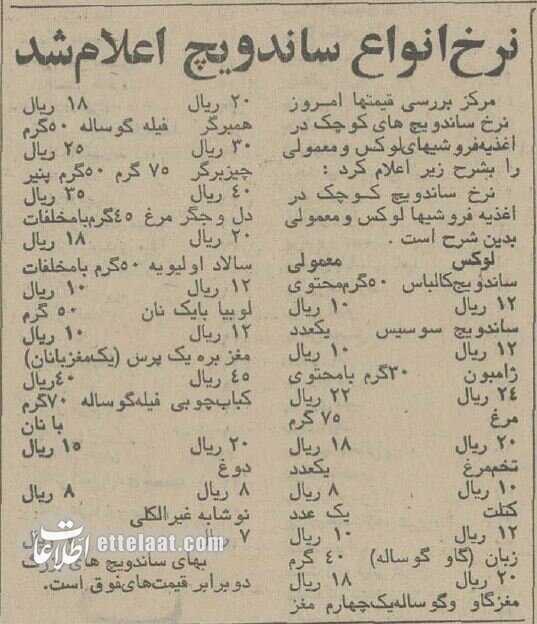 نرخ انواع ساندویچ اعلام شد
مرکز بررسی قیمتها امروز
نرخ ساندویچ های کوچک در
اغذیه فروشیهای لوکس و معمولی
را بشرح زیر اعلام کرد :
نرخ ساندویچ کوچک در
اغذیه فروشیها لوکس و معمولی
بدین شرح است .
لوکس معمولی
ساندویچ کالباس ۵۰ گرم محتوی
۱۲ ریال ۱۰ ریال
ساندویچ سوسیس یکعدد
۱۲ ریال ۱۰ ریال
ژامبون ۳۰ گرم با محتوی
۲۴ ریال ۲۲ ریال
مرغ ۷۵ گرم
۲۰ ریال ۱۸ ریال
تخم مرغ یکعدد
۱۰ ریال ۸ ریال
کتلت یک عدد
۱۲ ریال ۱۰ ریال
زبان (گاو گوساله) ۴۰ گرم
۲۰ ریال ۱۸ ریال
مغز گاو و گوساله یک چهارم مغز
۲۰ ریال ۱۸ ریال
همبرگر فیله گوساله ۵۰ گرم
۳۰ ریال ۲۵ ریال
چیزبرگر ۷۵ گرم ۵۰ گرم پنیر
۴۰ ریال ۳۵ ریال
دل و جگر مرغ ۴۵ گرم با مخلفات
۲۰ ریال ۱۸ ریال
سالاد اولیویه ۵۰ گرم با مخلفات
۱۲ ریال ۱۰ ریال
لوبیا با یک نان ۵۰ گرم
۱۲ ریال ۱۰ ریال
مغز بره یک پرس (یک مغز بانان)
۴۵ ریال ۴۰ ریال
کباب چوبی فیله گوساله ۷۰ گرم
با نان
۲۰ ریال ۱۵ ریال
دوغ
۸ ریال ۸ ریال
نوشابه غیر الکلی
۷ ریال
بهای ساندویچ های
دو برابر قیمت های فوق است.
اطلاعات ettelaat.com